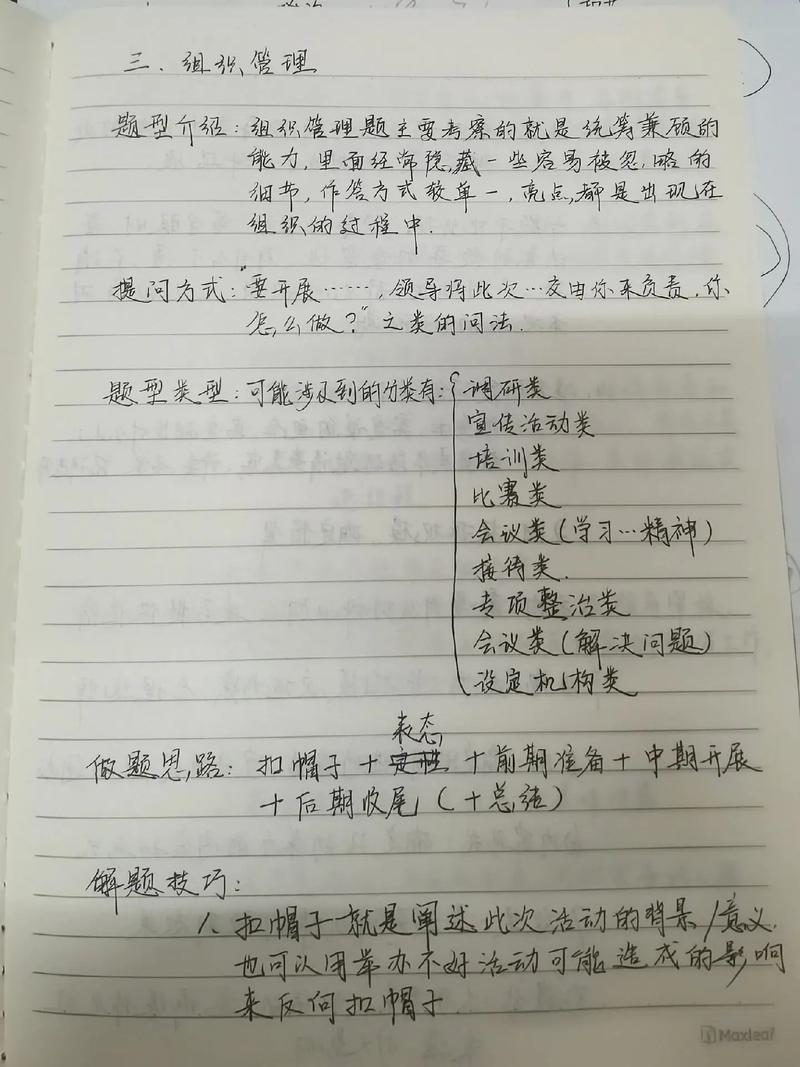 三、组织管理
题型介绍：组织管理题主要考察的就是统筹兼顾的
能力，里面经常隐藏一些容易被忽略的
细节，作答方式较单一，亮点都是出现在
组织的过程中.
提问方式："要开展……，领导将此次…交由你来负责，你
怎么做？"之类的问法.
题型类型：可能涉及到的分类有：
调研类
宣传活动类
培训类
比赛类
会议类（学习…精神）
接待类.
专项整治类
会议类（解决问题）
设定机构类
表态
做题思路：扣帽子+定性+前期准备+中期开展
+后期收尾（+总结）
解题技巧：
1. 扣帽子就是阐述此次活动的背景/意义.
也可以用举办不好活动可能造成的影响
来反向扣帽子.
Maxleaf